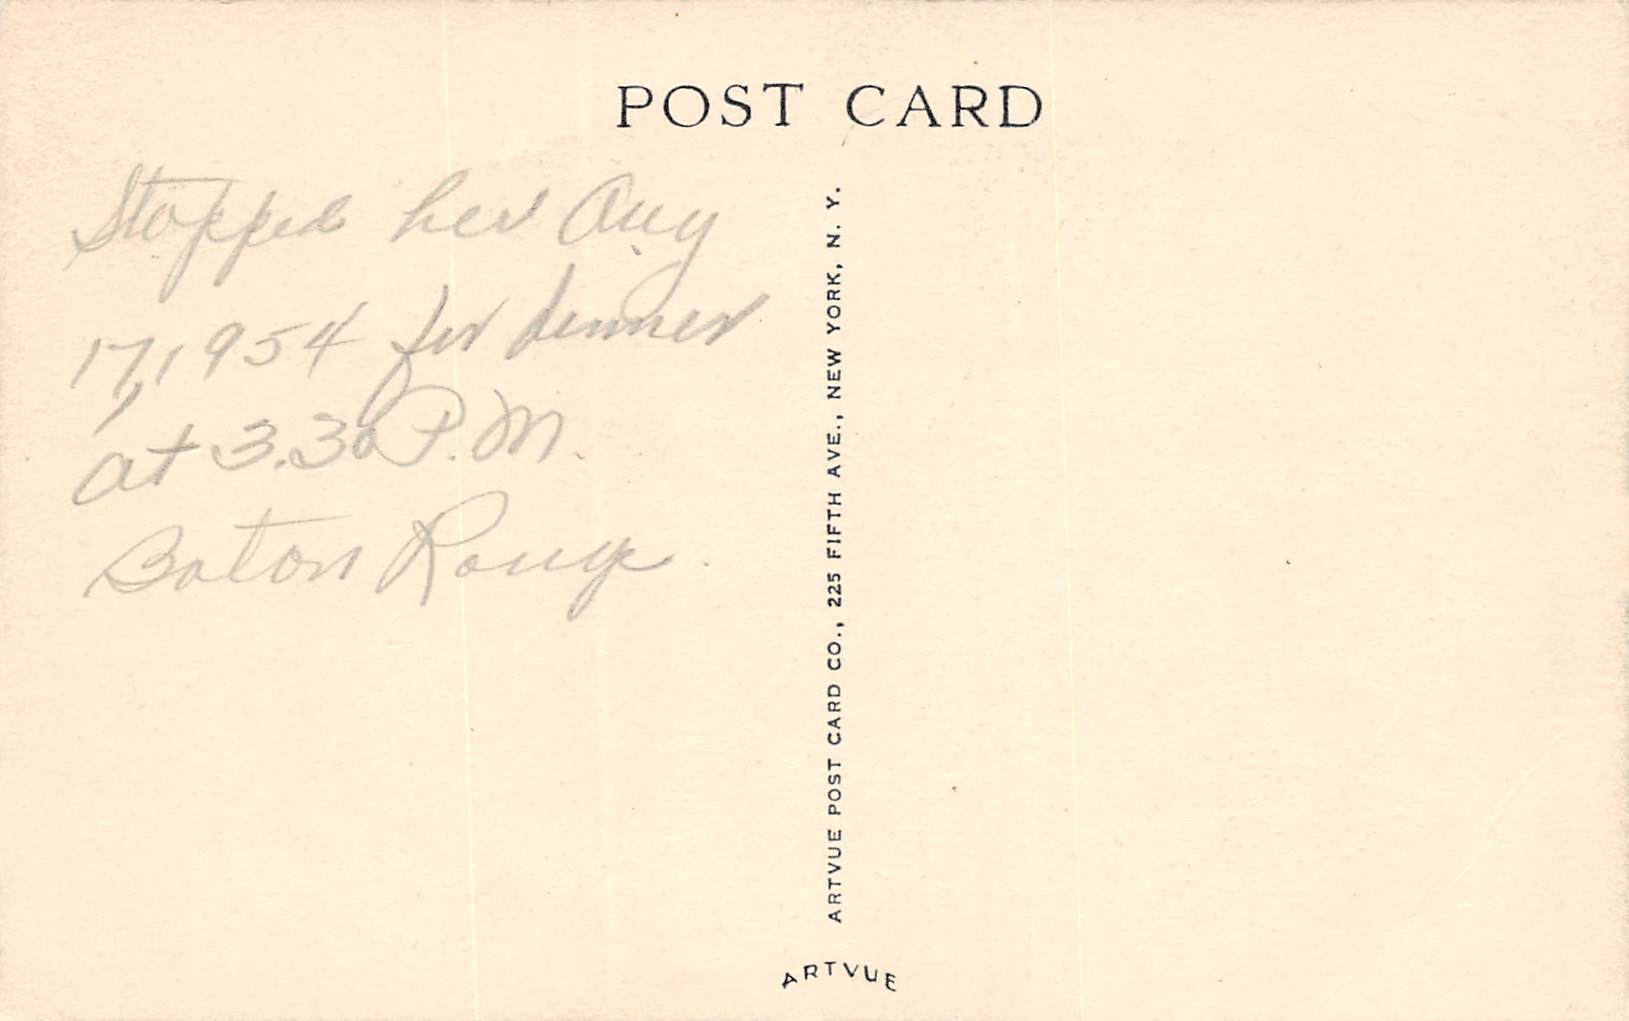 POST CARD
Stopped her Aug
17, 1954 for dinner
at 3.30 P.M.
Baton Rouge.
ARTVUE POST CARD CO., 225 FIFTH AVE., NEW YORK, N. Y.
ARTVUE